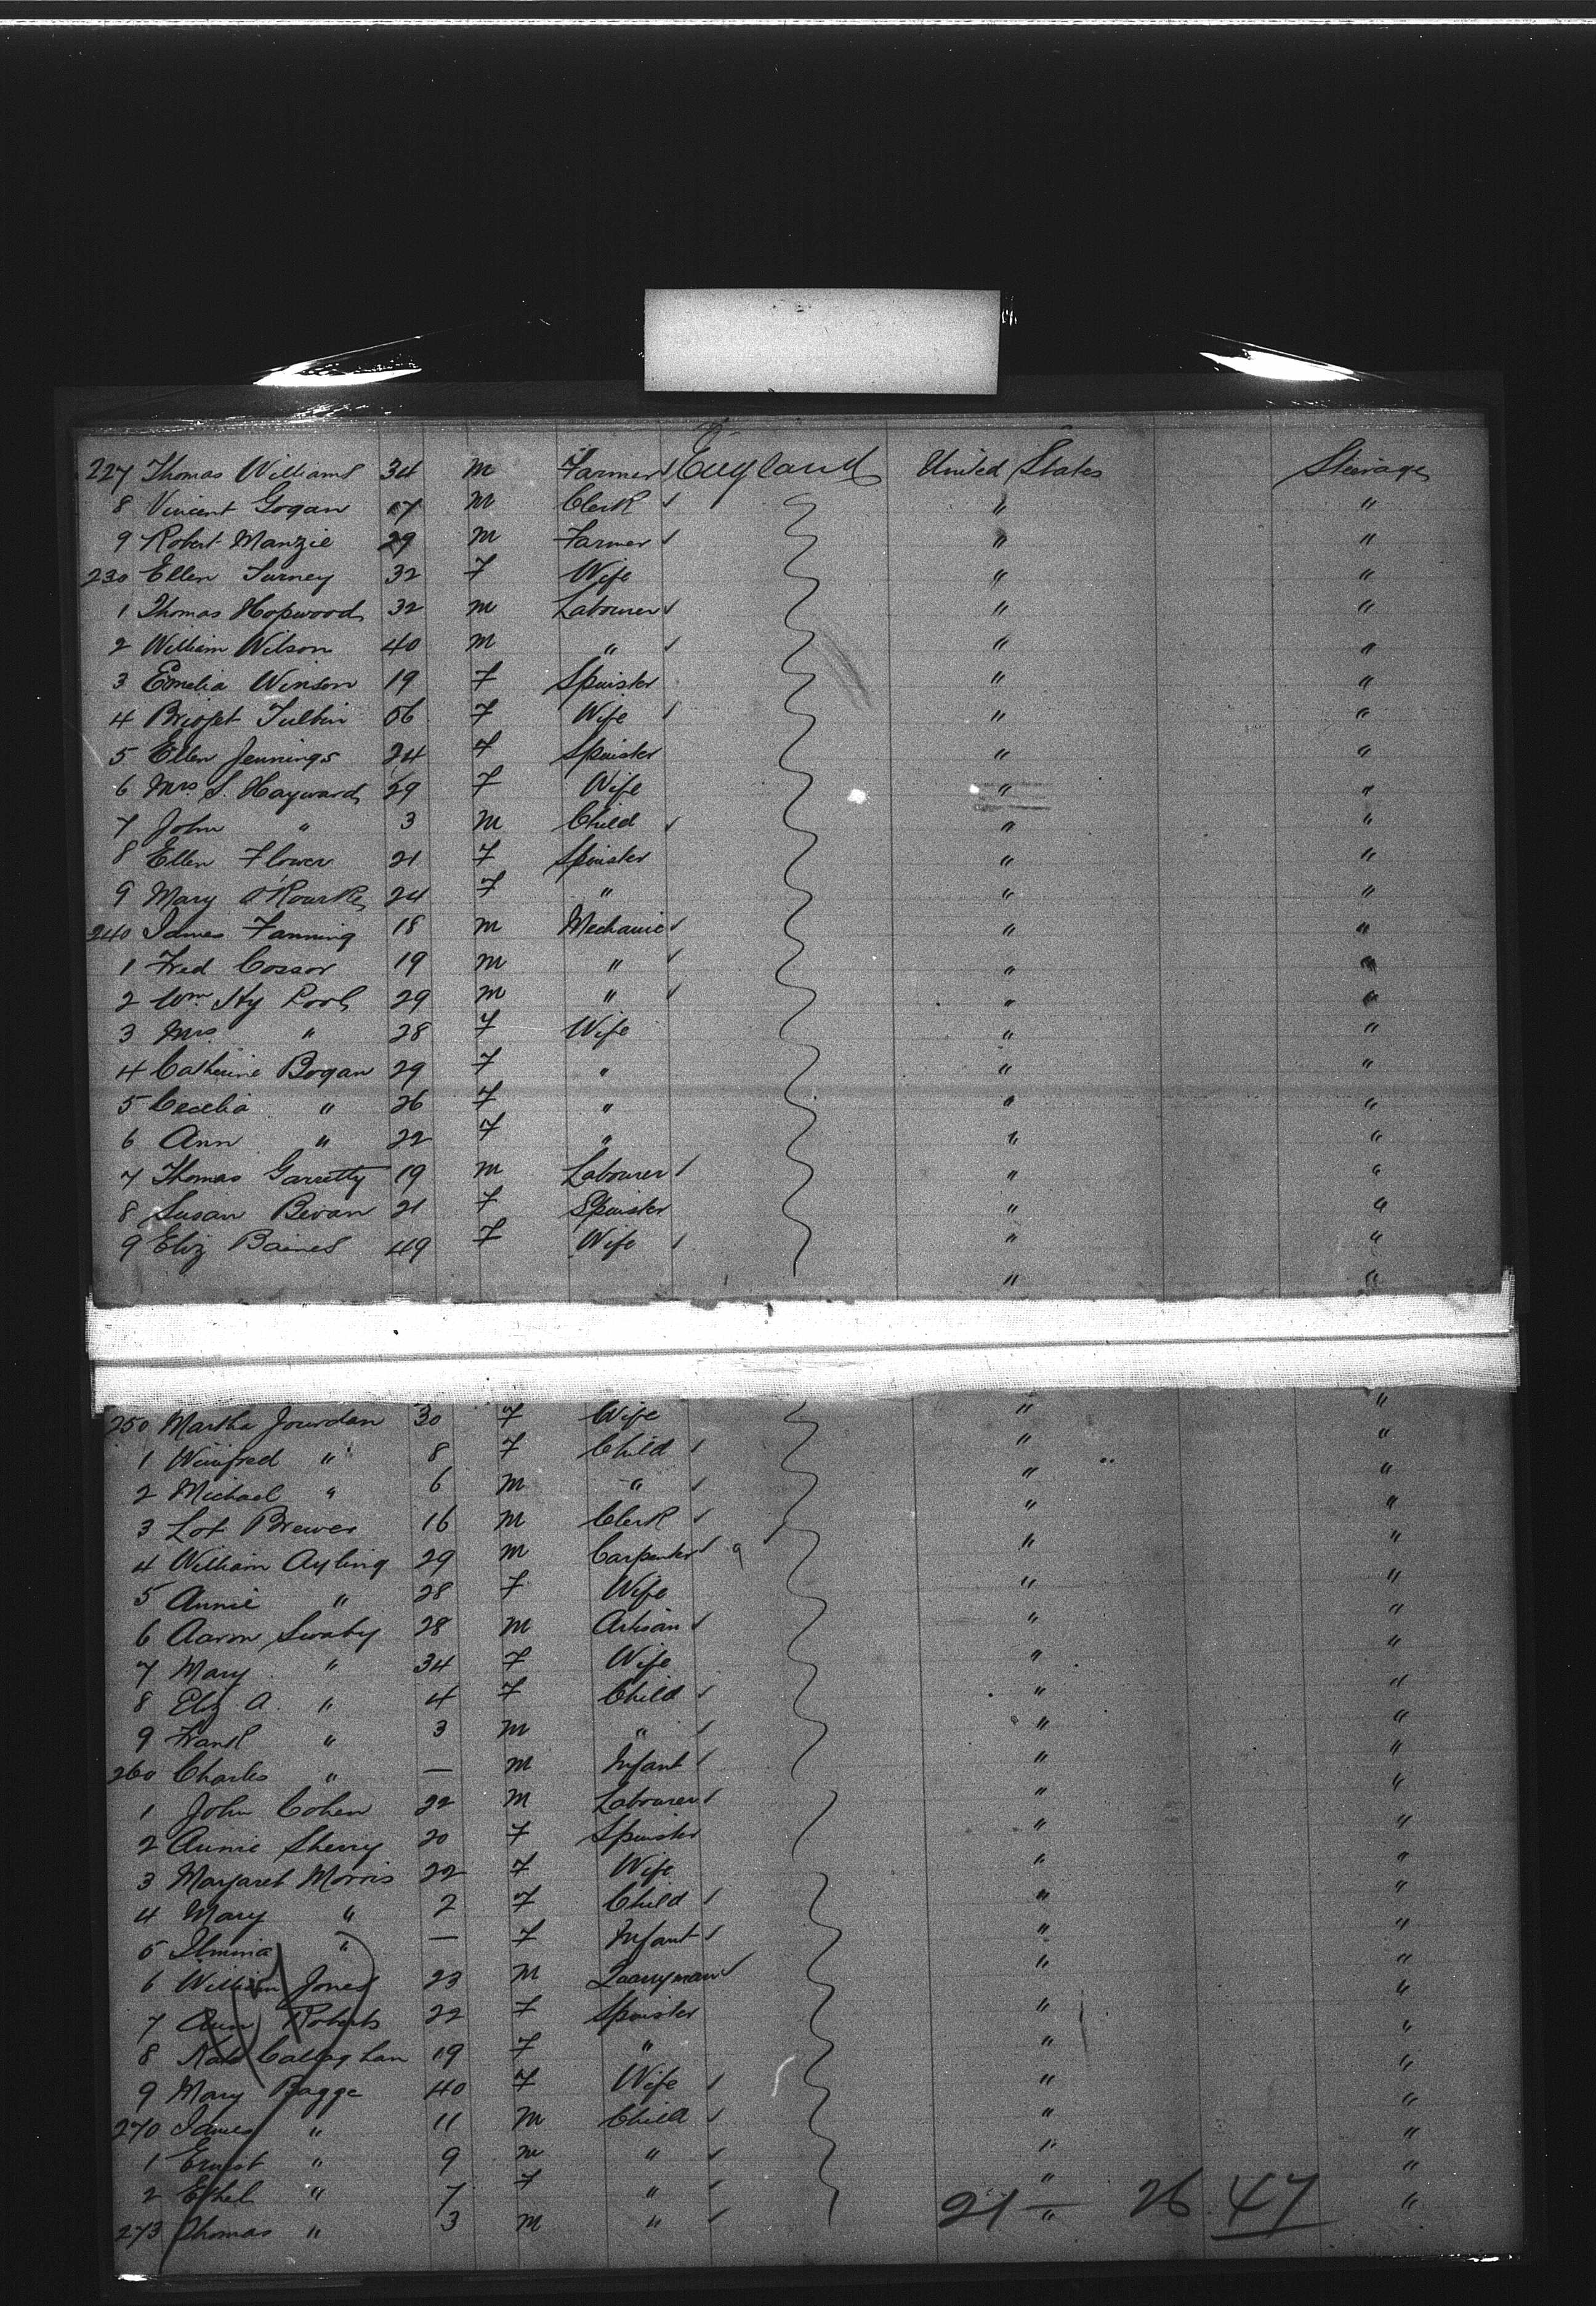 227 Thomas Williams 34 m Farmer England United States Steerage
8 Vincent Gogan 17 m Clerk " "
9 Robert Manzie 29 m Farmer " "
230 Ellen Turney 32 F Wife " "
1 Thomas Hopwood 32 m Labourer " "
2 William Wilson 40 m " " "
3 Emelia Winson 19 F Spinster " "
4 Bridget 56 F Wife " "
5 Ellen Jennings 24 F Spinster " "
6 Mrs S. Hayward 29 F Wife " "
7 John " 3 m Child " "
8 Ellen Flower 21 F Spinster " "
9 Mary O'Rourke 24 F " " "
240 James Fanning 18 m Mechanic " "
1 Fred Cossor 19 m " " "
2 Wm Hy Pool 29 m " " "
3 Mrs " 28 F Wife " "
4 Catherine Bogan 29 F " " "
5 Cecelia " 26 F " " "
6 Ann " 22 F " " "
7 Thomas Garretty 19 m Labourer " "
8 Susan Bevan 21 F Spinster " "
9 Eliz Baines 49 F Wife " "
" "
250 Martha Jourdan 30 F Wife " "
1 Winifred " 8 F Child " "
2 Michael " 6 m " " "
3 Lot Brewer 16 m Clerk " "
4 William Ayling 29 m Carpenter " "
5 Annie " 28 F Wife " "
6 Aaron Swaby 28 m Artisan " "
7 Mary " 34 F Wife " "
8 Eliz A. " 4 F Child " "
9 Frank " 3 m " " "
260 Charles " — m Infant " "
1 John Cohen 22 m Labourer " "
2 Annie Sherry 20 F Spinster " "
3 Margaret Morris 22 F Wife " "
4 Mary " 2 F Child " "
5 " — F Infant " "
6 William Jones 23 m Quarryman " "
7 Ann Roberts 22 F Spinster " "
8 Kate Callaghan 19 F " " "
9 Mary Bagge 40 F Wife " "
270 James " 11 m Child " "
1 Ernest " 9 m " " "
2 Ethel " 7 F " " "
273 Thomas " 3 m " " "
21 — 26 47